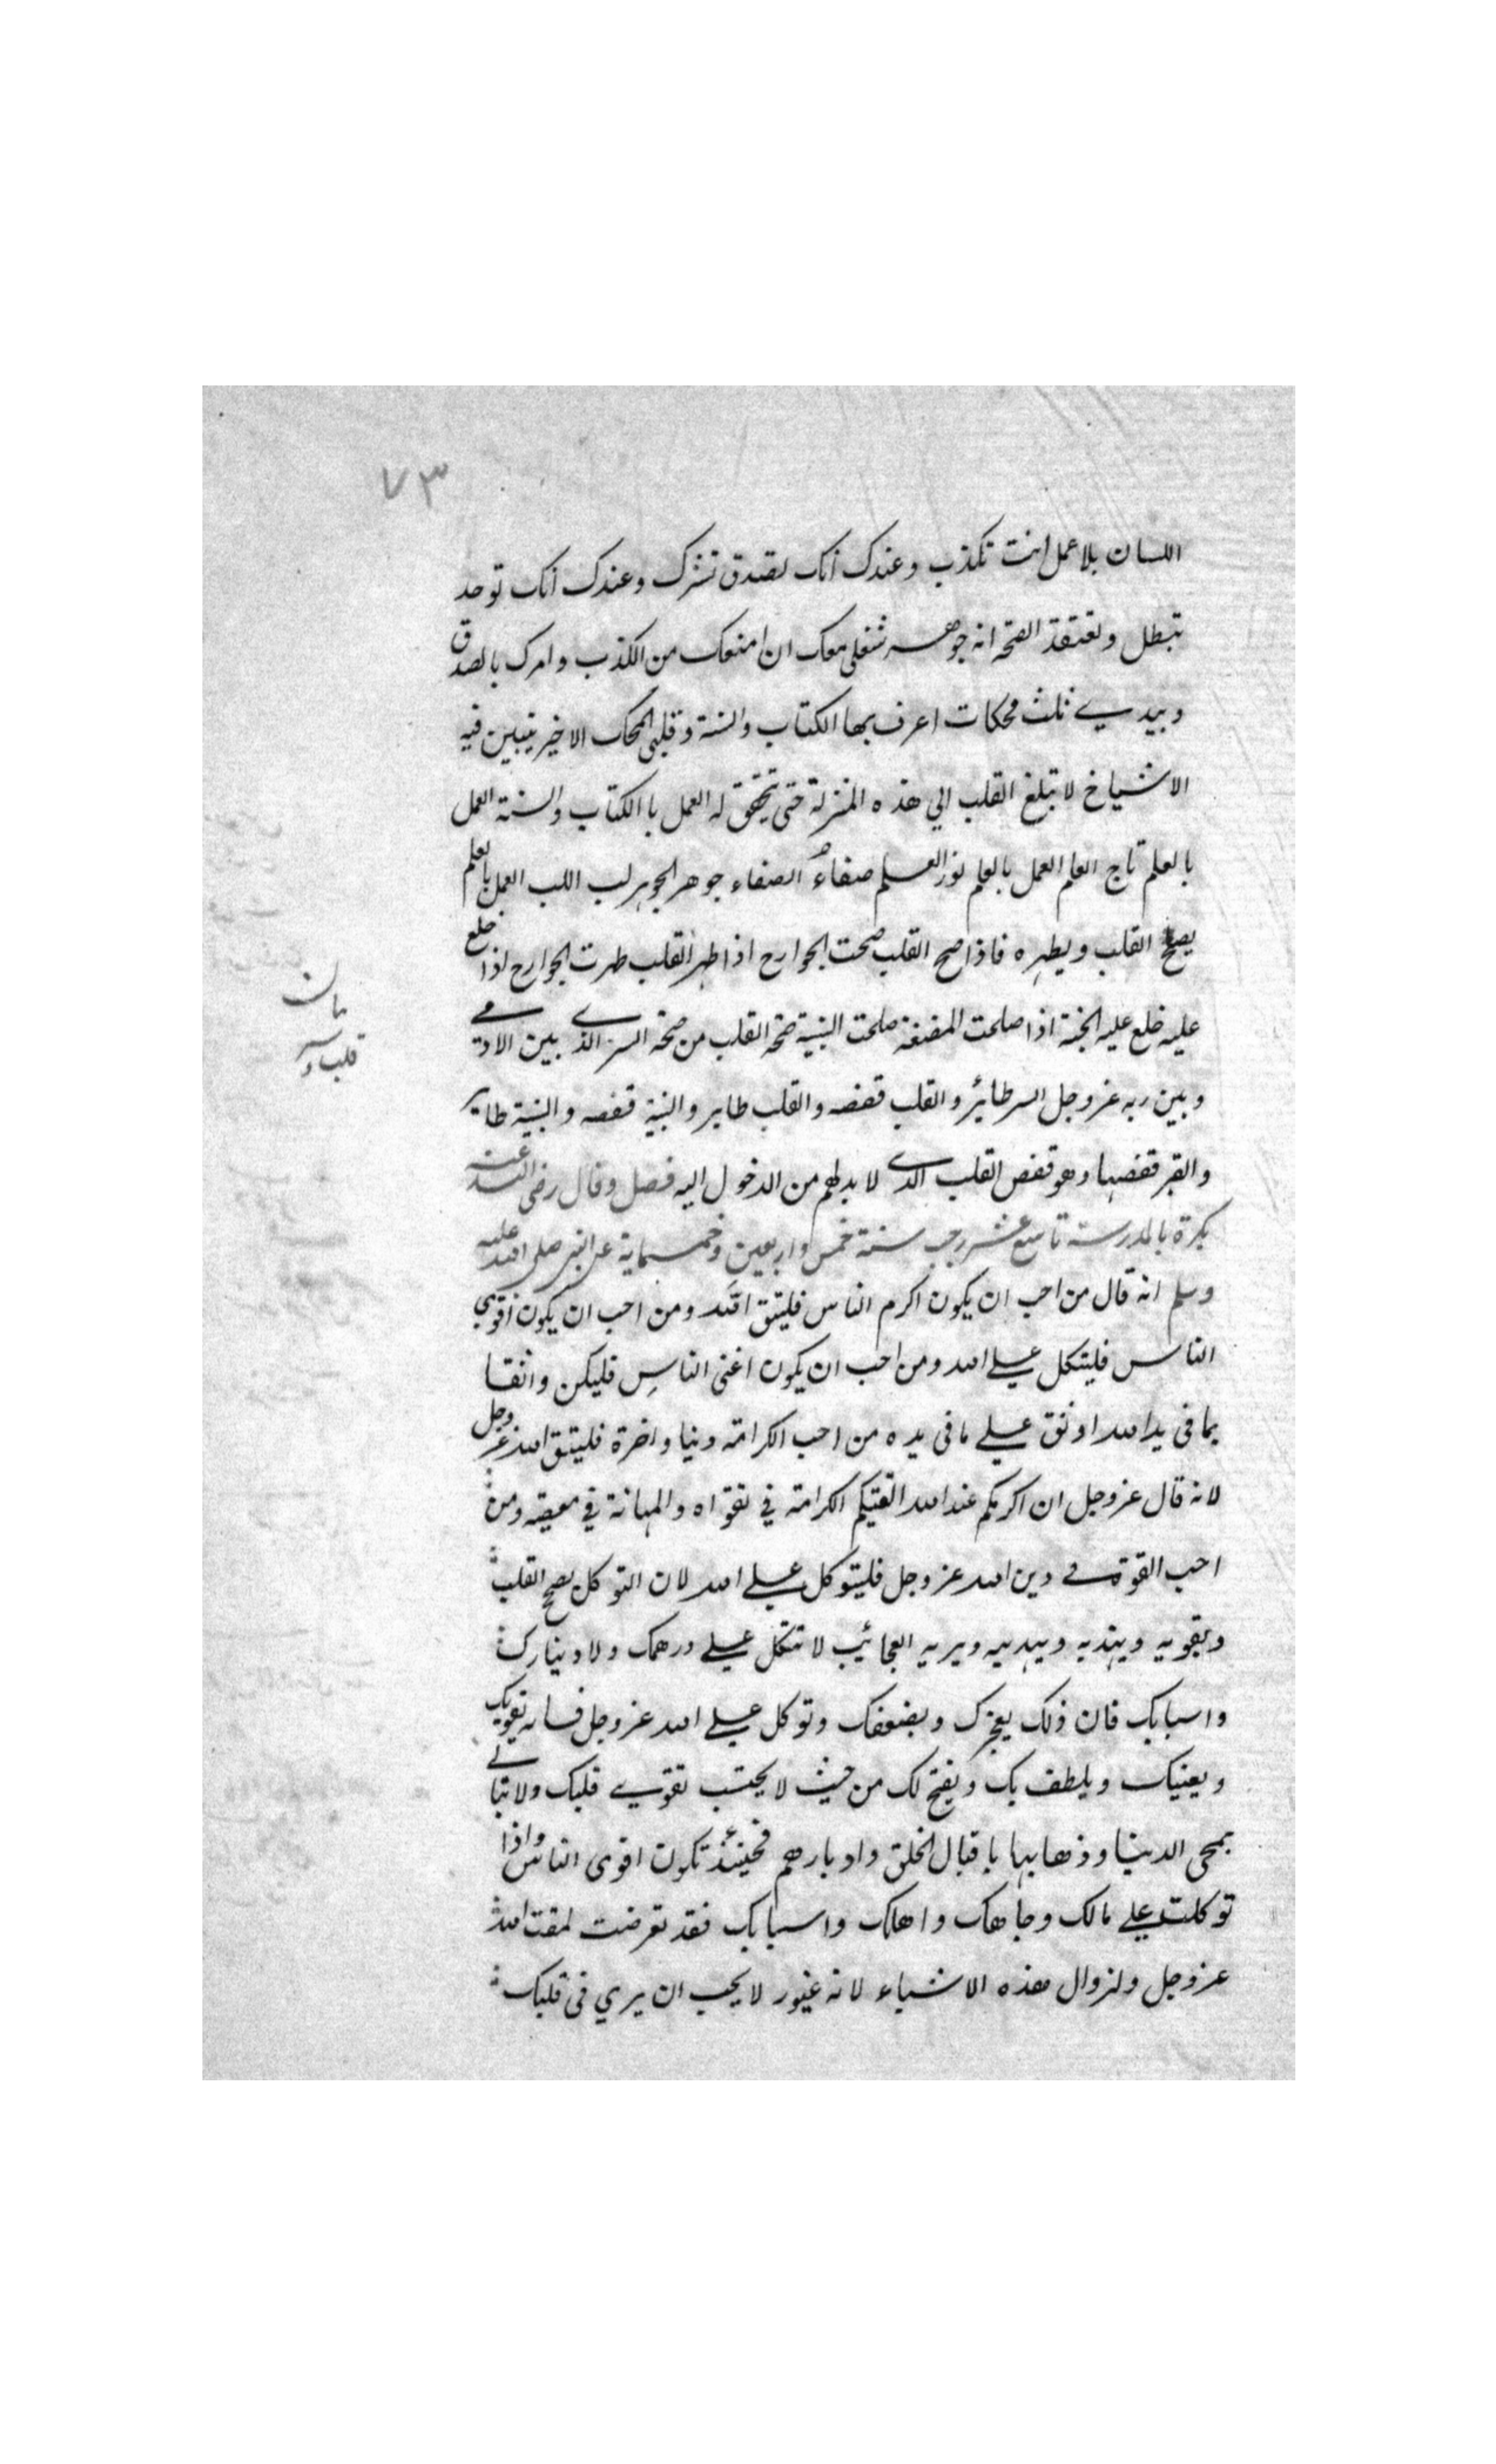 ٧٣
اللسان بلا عمل انت تكذب وعندك انك تصدق تشرك وعندك انك توحد
تبطل وتعتقد الصحة انه جوهر شغلي معك ان امنعك من الكذب وامرك بالصدق
وبيدي ثلث محكات اعرف بها الكتاب والسنة وقلبي المحك الاخير يتبين فيه
الاشياخ لا تبلغ القلب الي هذه المنزلة حتى يتحقق له العمل با الكتاب والسنة العمل
بالعلم تاج العلم العمل بالعلم نور العلم صفاء الصفاء جوهر الجوهر لب اللب العمل بالعلم
يصح القلب ويطهره فاذا صح القلب صحت الجوارح اذا طهر القلب طهرت الجوارح اذا خلع
عليه خلع عليه الجنة اذا صلحت المضغة صلحت البنية صحة القلب من صحة السر الذي بين الادمي
وبين ربه عز وجل السر طائر والقلب قفصه والقلب طاير والبنية قفصه والبنية طاير
والقبر قفصها وهو قفص القلب الذي لا بد لهم من الدخول اليه فصل وقال رضى الله عنه
بكرة بالمدرسة تاسع عشر رجب سنة خمس واربعين وخمسماية عن النبي صلى الله عليه
وسلم انه قال من احب ان يكون اكرم الناس فليتق الله ومن احب ان يكون اقوي
الناس فليتكل علي الله ومن احب ان يكون اغنى الناس فليكن واثقا
بما فى يد الله اوثق علي ما فى يده من احب الكرامة دنيا واخرة فليتق الله عز وجل
لانه قال عز وجل ان اكرمكم عند الله اتقيكم الكرامة في تقواه والمهانة في معصيته ومن
احب القوة في دين الله عز وجل فليتوكل علي الله لان التوكل يصح القلب
ويقويه ويهذبه ويهديه ويريه العجائب لا تتكل علي درهمك ولا دينارك
واسبابك فان ذلك يعجزك ويضعفك وتوكل علي الله عز وجل فانه يقويك
ويعنيك ويلطف بك ويفتح لك من حيث لا يحتسب تقوي قلبك ولا تبالي
بمجى الدنيا وذهابها باقبال الخلق وادبارهم فحينئذ تكون اقوى الناس واذا
توكلت علي مالك وجاهك واهلك واسبابك فقد تعرضت لمقت الله
عز وجل ولزوال هذه الاشياء لانه غيور لا يحب ان يري فى قلبك